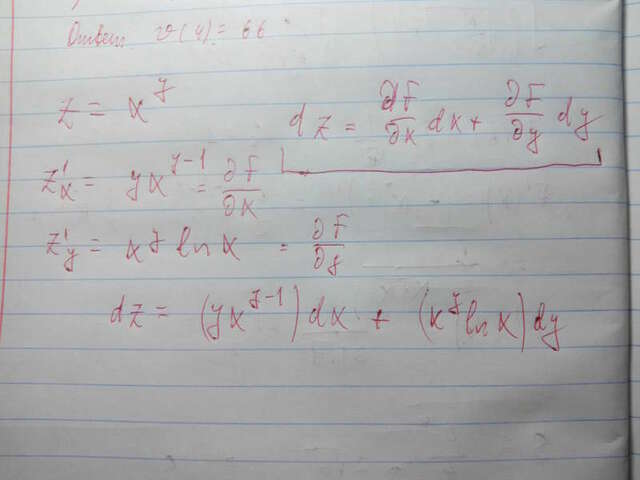 Ответ: v(4) = 66
z = x^y
dz = ∂F/∂x dx + ∂F/∂y dy
z'x = yx^(y-1) = ∂F/∂x
z'y = x^y ln x = ∂F/∂y
dz = (yx^(y-1))dx + (x^y ln x)dy